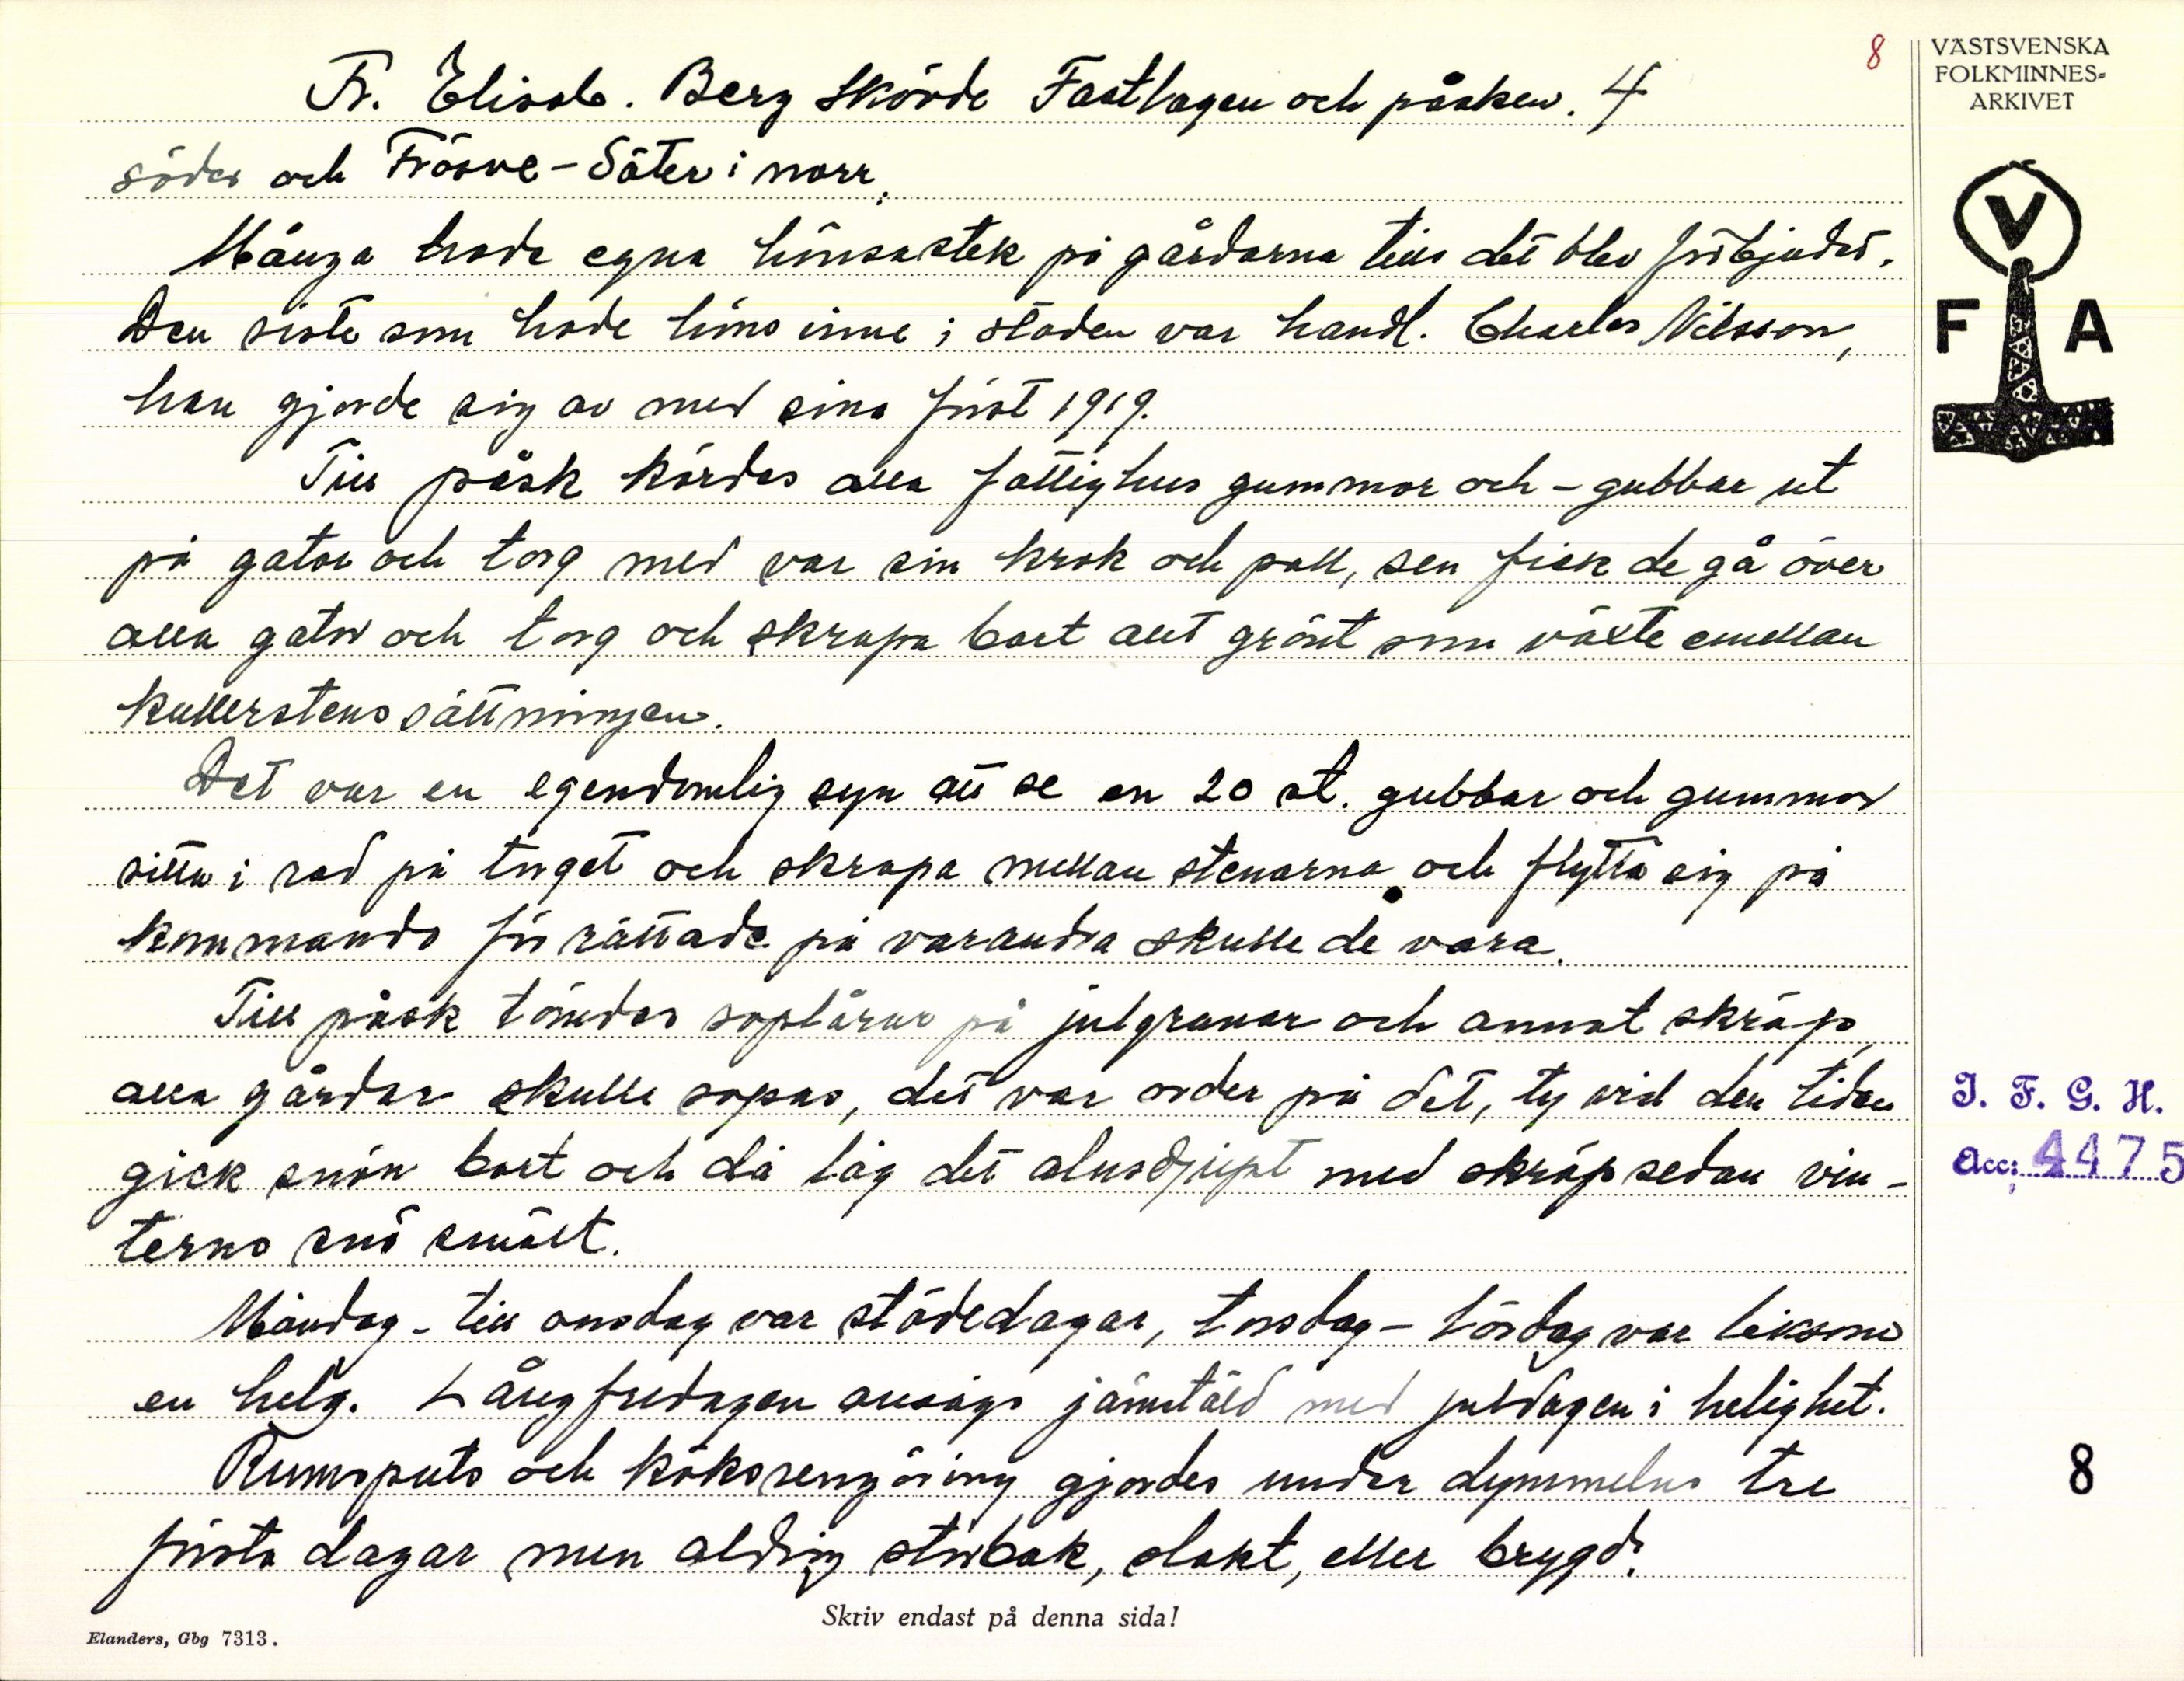 8
VÄSTSVENSKA
FOLKMINNES-
ARKIVET
Fr. Elisab. Berg Skövde Fastlagen och påsken. 4
söder och Frösve-Säter i norr.
Många hade egna hönsastek på gårdarna tills det blev förbjudet.
Den siste som hade höns inne i staden var handl. Charles Nilsson,
han gjorde sig av med sina först 1919.
Till påsk kördes alla fattighus gummor och -gubbar ut
på gator och torg med var sin krok och pall, sen fick de gå över
alla gator och torg och skrapa bort allt grönt som växte emellan
kullerstenssättningen.
Det var en egendomlig syn att se en 20 st. gubbar och gummor
sitta i rad på torget och skrapa mellan stenarna och flytta sig på
kommando för rättade på varandra skulle de vara.
Till påsk tömdes soplårar på julgranar och annat skräp,
alla gårdar skulle sopas, det var order på det, ty vid den tiden
gick snön bort och då låg det alnsdjupt med skräp sedan vin-
terns snö smält.
Måndag- till onsdag var städedagar, torsdag- Lördag var liksom
en helg. Långfredagen ansågs jämstäld med juldagen i helighet.
Rumsputs och köksrengöring gjordes under dymmelns tre
första dagar men aldrig storbak, slakt, eller brygd.
Skriv endast på denna sida!
Elanders, Gbg 7313.
V
F A
I. F. G. H.
Acc: 4475
8